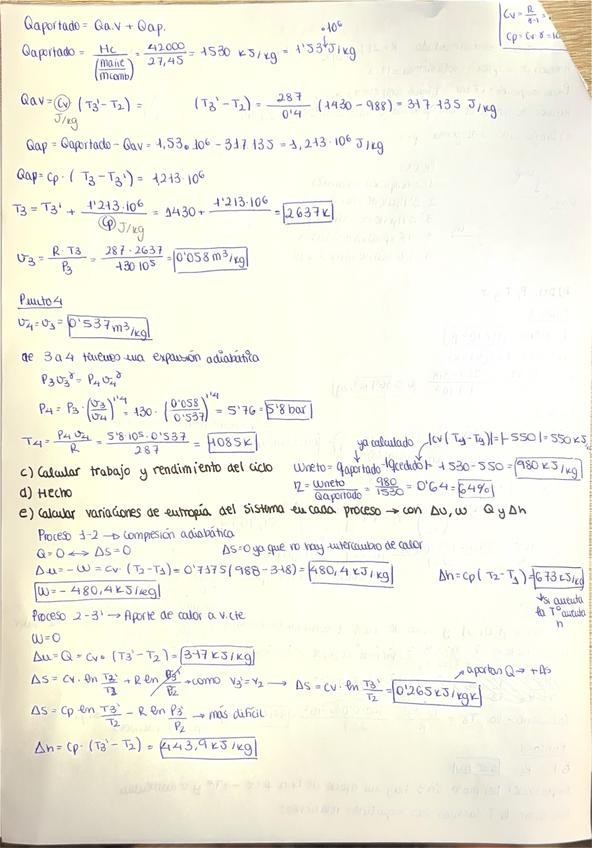 Qaportado = Qa.v + Qap.
Cv = R/γ-1 =
Cp = Cv·γ = 10
Qaportado = Hc/(maire/mcomb) = 42000/27,45 = 1530 kJ/kg = 1'53·10⁶ J/kg
Qav = Cv (T3' - T2) = (T3' - T2) = 287/0'4 (1430 - 988) = 317.135 J/kg
J/kg
Qap = Qaportado - Qav = 1,53·10⁶ - 317.135 = 1,213·10⁶ J/kg
Qap = Cp · (T3 - T3') = 1,213·10⁶
T3 = T3' + 1'213·10⁶/Cp J/kg = 1430 + 1'213·10⁶/ = 2637 K
υ3 = R·T3/P3 = 287·2637/130·10⁵ = 0'058 m³/kg
Punto 4
υ4 = υ5 = 0'537 m³/kg
de 3 a 4 tenemos una expansión adiabática
P3υ3^γ = P4υ4^γ
P4 = P3 · (υ3/υ4)^1'4 = 130 · (0'058/0'537)^1'4 = 5'76 = 5'8 bar
T4 = P4·υ4/R = 5'8·10⁵·0'537/287 = 1085 K
ya calculado |Cv(T4 - T5)| = |-550| = 550 kJ/
c) Calcular trabajo y rendimiento del ciclo Wneto = Qaportado - |Qcedido| = 1530 - 550 = 980 kJ/kg
d) Hecho η = Wneto/Qaportado = 980/1530 = 0'64 = 64%
e) Calcular variaciones de entropía del sistema en cada proceso → con Δu, w, Q y Δh
Proceso 1-2 → Compresión adiabática
Q = 0 ↔ ΔS = 0 ΔS = 0 ya que no hay intercambio de calor
Δu = -W = Cv · (T2 - T1) = 0'7175 (988 - 318) = 480,4 kJ/kg Δh = Cp (T2 - T1) = 673 kJ/kg
W = -480,4 kJ/kg
↳ si aumenta la Tº aumenta h
Proceso 2-3' → Aporte de calor a v.cte
W = 0
Δu = Q = Cv · (T3' - T2) = 317 kJ/kg
aportan Q → +ΔS
ΔS = Cv · ln T3'/T2 + R ln → como V3' = V2 → ΔS = Cv · ln T3'/T2 = 0'265 kJ/kgK
ΔS = Cp ln T3'/T2 - R ln P3'/P2 → más difícil
Δh = Cp · (T3' - T2) = 443,9 kJ/kg